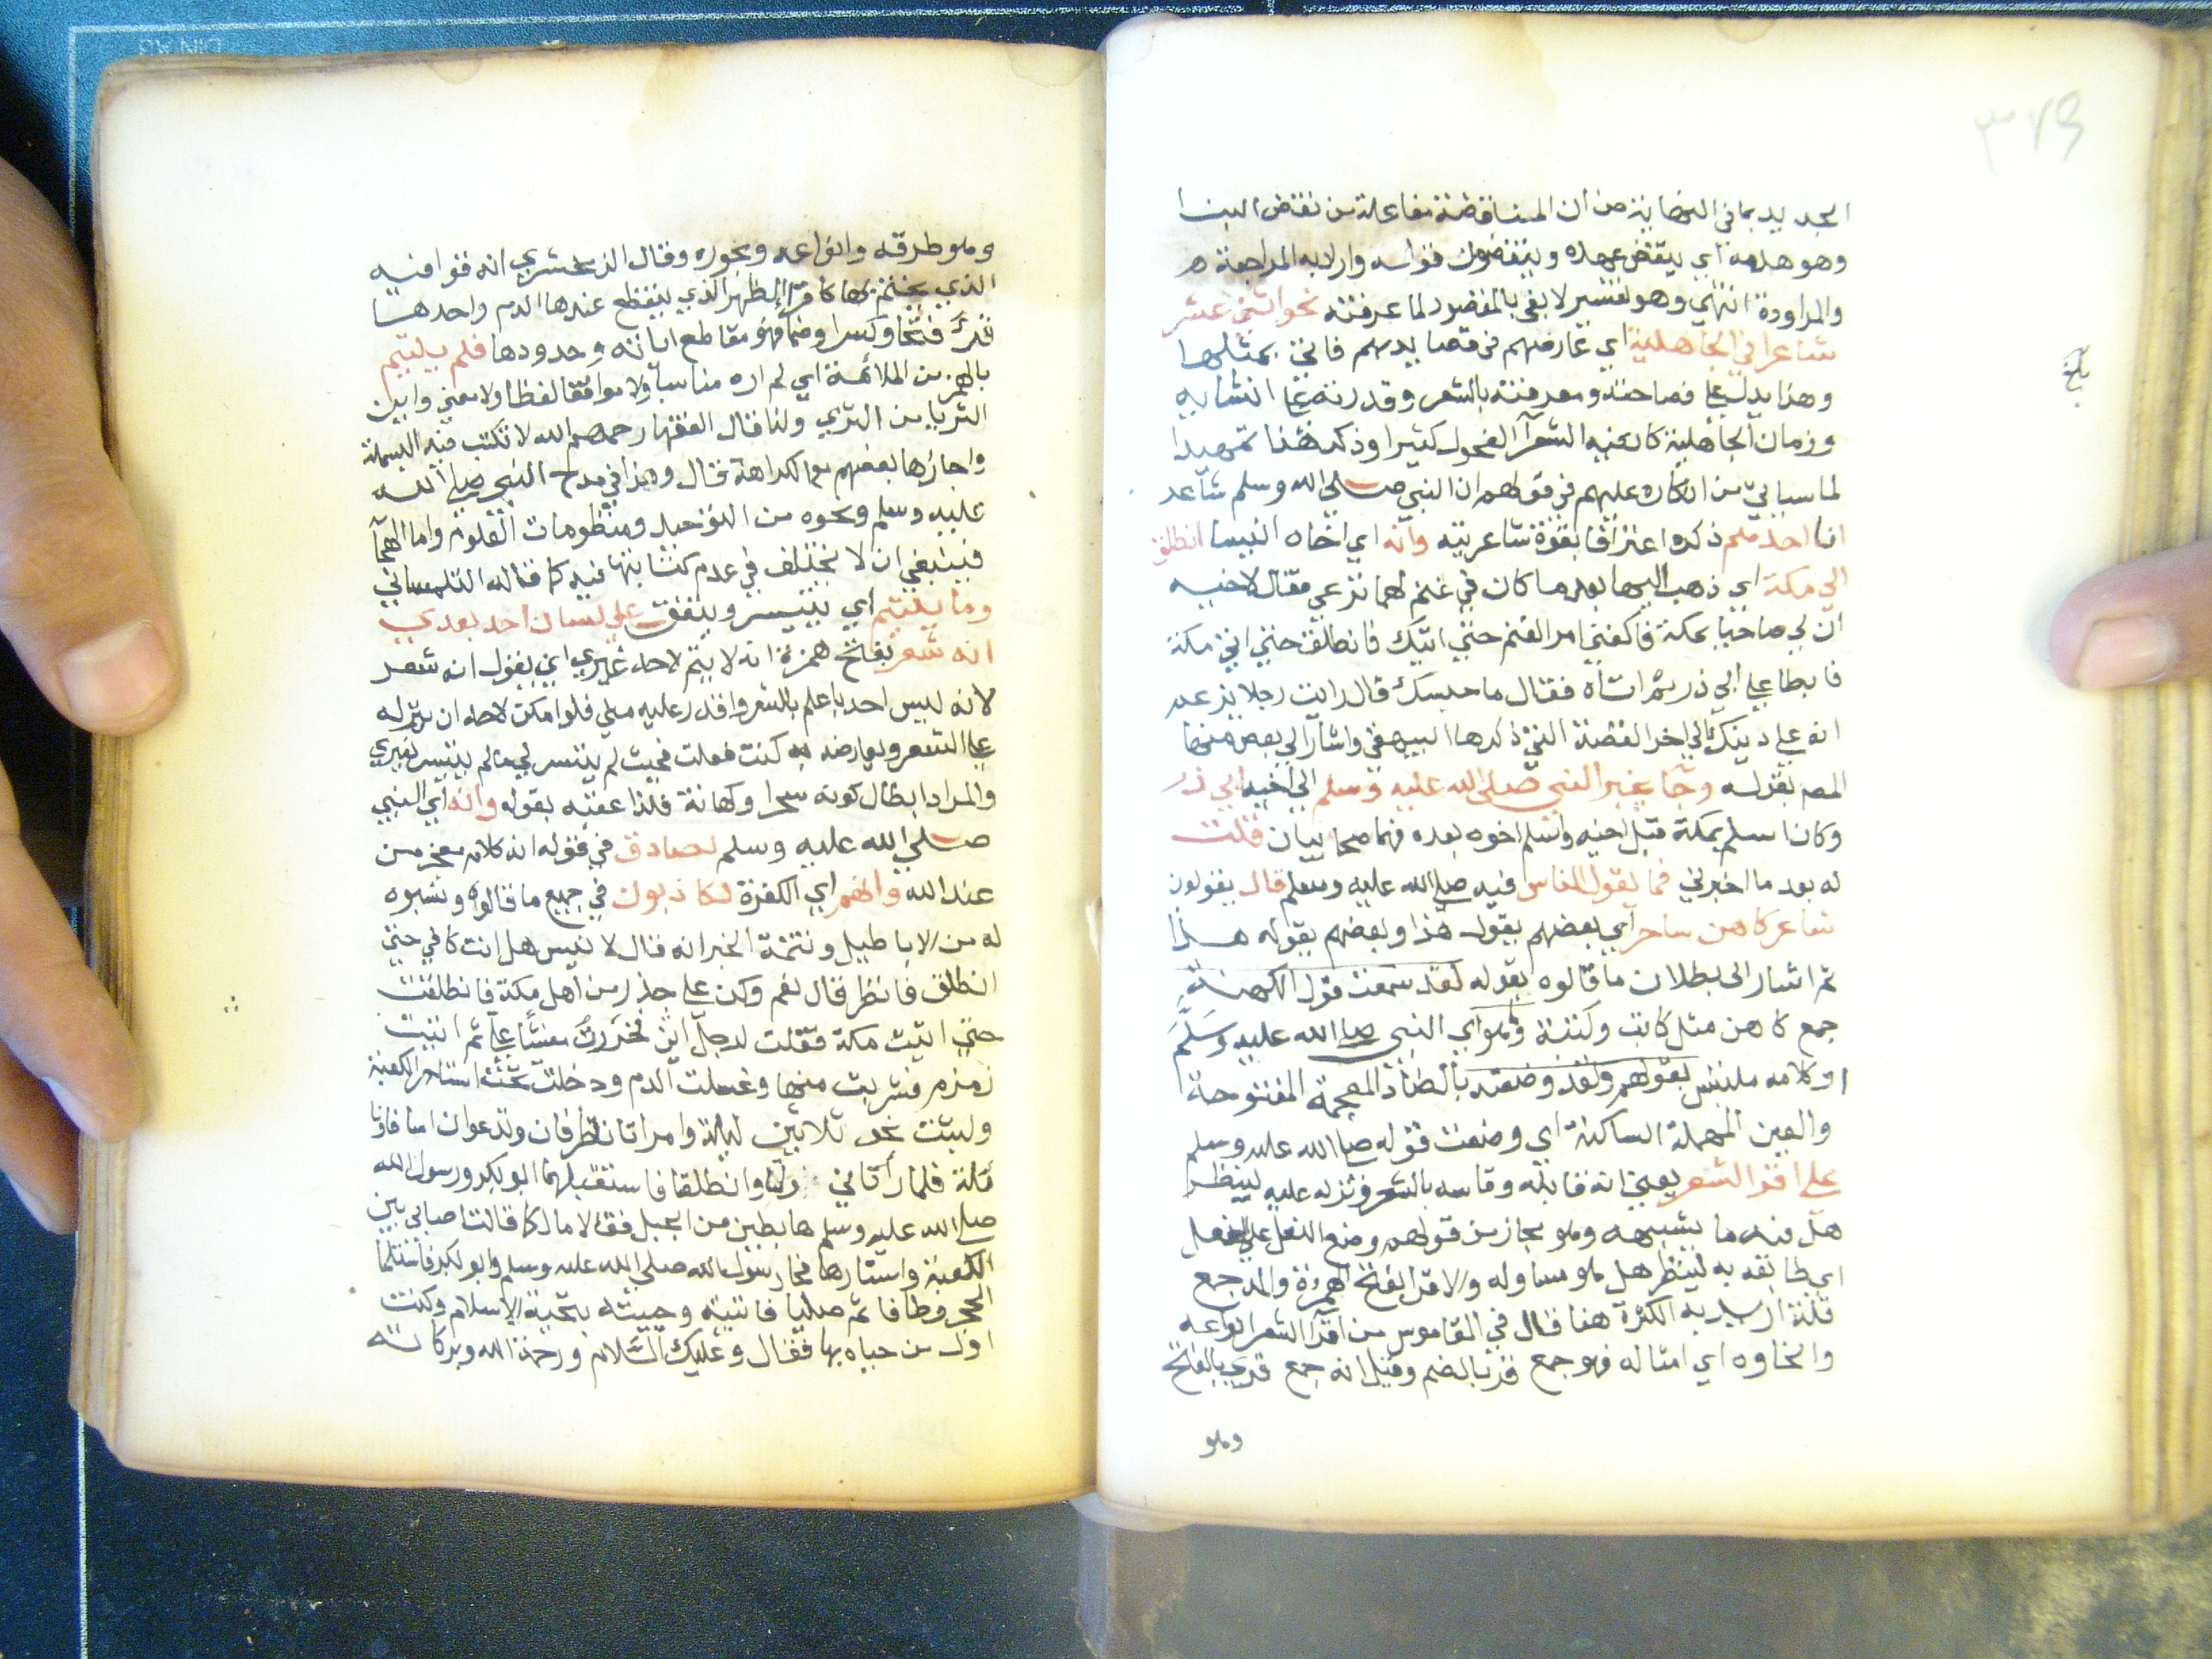 ٣٧٩
الجديد بما في النهاية من ان المناقضة مفاعلة من نقض البنا
وهو هدمه اي ينقض عهده وينقضون قوله واراد به المراجعة
والمراودة انتهى وهو تفسير لا يفي بالمقصود لما عرفته نحو اثني عشر
شاعرا في الجاهلية اي عارضهم في قصايدهم فاتى بمثلها
وهذا يدل على فصاحته ومعرفته بالشعر وقدرته على انشايه
وزمان الجاهلية كان فيه الشعرآ الفحول كثيرا وذكر هذا تمهيدا
لما سياتي من انكاره عليهم في قولهم ان النبي صلى الله وسلم شاعر
انا احدهم ذكره اعترافا بقوة شاعريته وانه اي اخاه انيسا انطلق
الى مكة اي ذهب اليها بعد ما كان في غنم لهما نزعي فقال لاخيه
ان لي صاحبا بمكة فاكفني امر الغنم حتى اتيك فانطلق حتى اتى مكة
فابطا على ابي ذر ثم اتاه فقال ما حبسك قال رايت رجلا يزعم
انه على دينك الى اخر القصة التي ذكرها البيهقي واشار الى بعض منها
المصم بقوله وجا بخبر النبي صلى الله عليه وسلم الى اخيه ابي ذر
وكان اسلم بمكة قبل اخيه واسلم اخوه بعده فهما صحابيان قلت
له بعد ما اخبرني فما يقول الناس فيه صلى الله عليه وسلم قال يقولون
شاعر كاهن ساحر اي بعضهم يقول هذا وبعضهم يقول هذا
ثم اشار الى بطلان ما قالوه بقوله لقد سمعت قول الكهنة
جمع كاهن مثل كاتب وكتبة وما هو اي النبي صلى الله عليه وسَلَّمَ
او كلامه ملتبس بقولهم ولقد وضعته بالضاد المعجمة المفتوحة
والعين المهملة الساكنة اي وضعت قوله صلى الله عليه وسلم
على اقرا الشعر يعني انه قابله وقاسه بالشعر ونزله عليه لينظر
هل فيه ما يشبهه وهو مجاز من قولهم وضع النعل على النعل
اي طابقه به لينظر هل هو مساو له والاقرا بفتح الهمزة والمد جمع
قلة اريد به الكثرة هنا قال في القاموس من اقرآ الشعر انواعه
وانحاوه اي امثاله فهو جمع قرء بالضم وقيل انه جمع قري بالفتح
وهو
بلغ
وهو طرقه وانواعه وبحوره وقال الزمخشري انه قوافيه
الذي يختم بها كاقرا الطهر الذي ينقطع عندها الدم واحدها
قرء فتحا وكسرا وضما فهو مقاطع ابياته وحدودها فلم يلتيم
بالهمز من الملائمة اي لم اره مناسبا ولا موافقا لفظا ولا معنى واين
الثريا من الثرى ولذا قال الفقهآ رحمهم الله لا تكتب فيه البسملة
واجازها بعضهم مع الكراهة قال وهذا في مدح النبي صلى الله
عليه وسلم ونحوه من التوحيد ومنظومات العلوم واما الهجآ
فينبغي ان لا يختلف في عدم كتابتها فيه كما قاله التلمساني
وما يلتيم اي يتيسر ويتفق على لسان احد بعدي
انه شعر بفتح همزة انه لا يتم لاحد غيري اي يقول انه شعر
لانه ليس احد باعلم بالشعر واقدر عليه مني فلو امكن لاحد ان ينزله
على الشعر ويعارضه به كنت فعلت فحيث لم يتيسر لي لم يتيسر لغيري
والمراد ابطال كونه سحرا وكهانة فلذا عقبه بقوله وانه اي النبي
صلى الله عليه وسلم لصادق في قوله انه كلام معجز من
عند الله وانهم اي الكفرة لكاذبون في جميع ما قالوه ونسبوه
له من الاباطيل وتتمة الخبر انه قال لانيس هل انت كافي حتى
انطلق فانظر قال نعم وكن على حذر من اهل مكة فانطلقت
حتى اتيت مكة فقلت لرجل اين فخررت مغشيا علي ثم اتيت
زمزم فشربت منها وغسلت الدم ودخلت تحت استار الكعبة
ولبثت نحو ثلاثين ليلة وامراتان تطوفان وتدعوان اسافا
نائلة فلما راتاني ولتا وانطلقا فاستقبلهما ابو بكر ورسول الله
صلى الله عليه وسلم هابطين من الجبل فقالا ما لكما قالتا صابي بين
الكعبة واستارها فجا رسول الله صلى الله عليه وسلم وابو بكر فاستلما
الحجر وطافا ثم صليا فاتيته وحييته بتحية الاسلام وكنت
اول من حياه بها فقال وعليك السَّلام ورحمة الله وبركاته